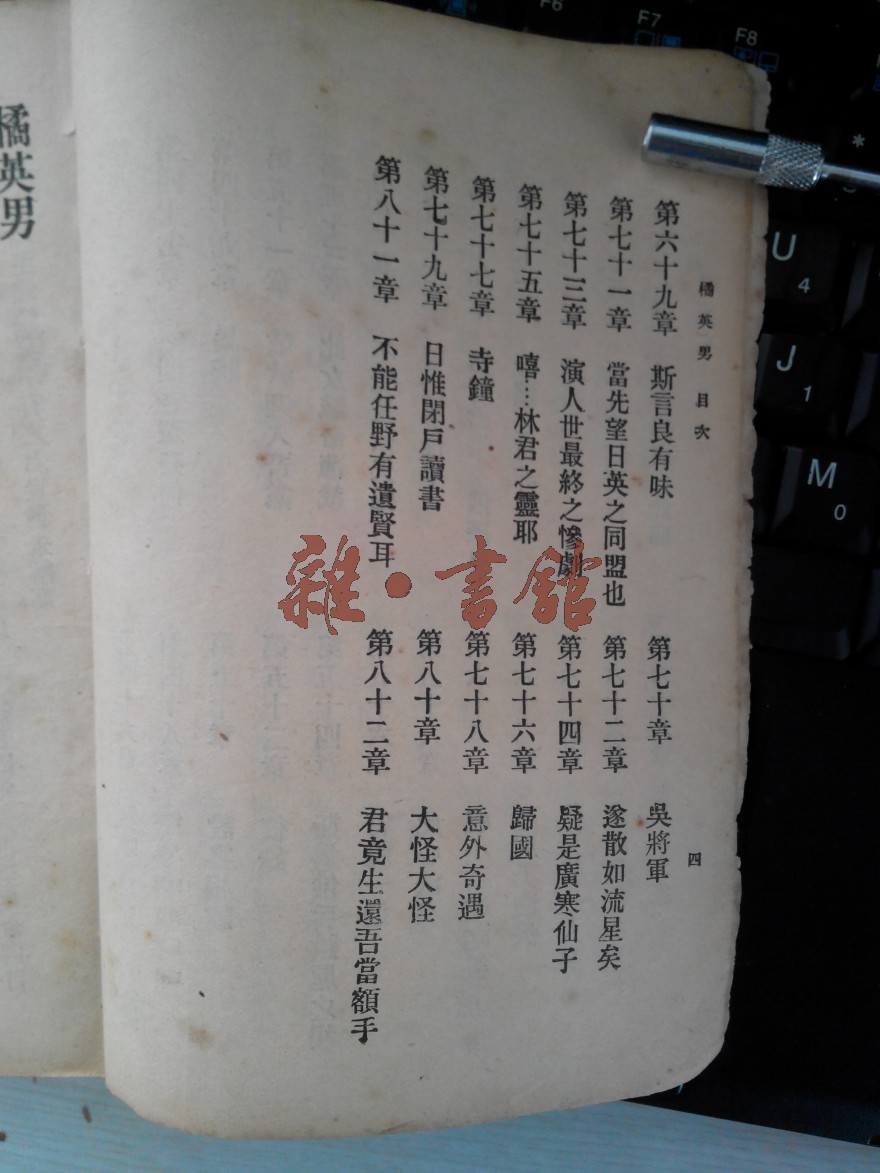 橘英男 目次
四
第六十九章 斯言良有味
第七十章 吳將軍
第七十一章 當先望日英之同盟也
第七十二章 遂散如流星矣
第七十三章 演人世最終之慘劇
第七十四章 疑是廣寒仙子
第七十五章 嘻…林君之靈耶
第七十六章 歸國
第七十七章 寺鐘
第七十八章 意外奇遇
第七十九章 日惟閉戶讀書
第八十章 大怪大怪
第八十一章 不能任野有遺賢耳
第八十二章 君竟生還吾當額手
橘英男
雜·書館
F6
F7
F8
*
U
4
J
1
M
0